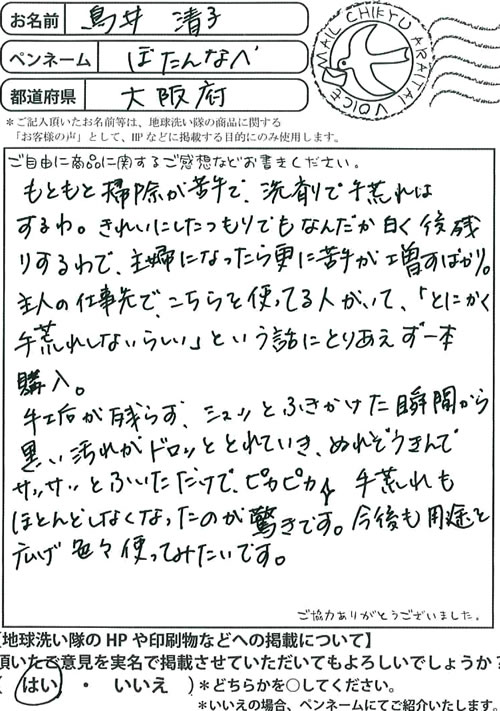 お名前 鳥井 清子
ペンネーム ぼたんなべ
都道府県 大阪府
MAIL CHIKYU ARAITAI VOICE
＊ご記入頂いたお名前等は、地球洗い隊の商品に関する
「お客様の声」として、HPなどに掲載する目的にのみ使用します。
ご自由に商品に関するご感想などお書きください。
もともと掃除が苦手で、洗剤で手荒れは
するわ。きれいにしたつもりでもなんだか白く後残
りするわで、主婦になったら更に苦手が増すばかり。
主人の仕事先で、こちらを使ってる人がいて、「とにかく
手荒れしないらしい」という話にとりあえず一本
購入。
手垢が残らず、シュッとふきかけた瞬間から
黒い汚れがドロッととれていき、ぬれぞうきんで
サッサッとふいただけで、ピカピカ 手荒れも
ほとんどしなくなったのが驚きです。今後も用途を
広げ色々使ってみたいです。
ご協力ありがとうございました。
【地球洗い隊のHPや印刷物などへの掲載について】
頂いたご意見を実名で掲載させていただいてもよろしいでしょうか？
（ はい ・ いいえ ）＊どちらかを○してください。
＊いいえの場合、ペンネームにてご紹介いたします。